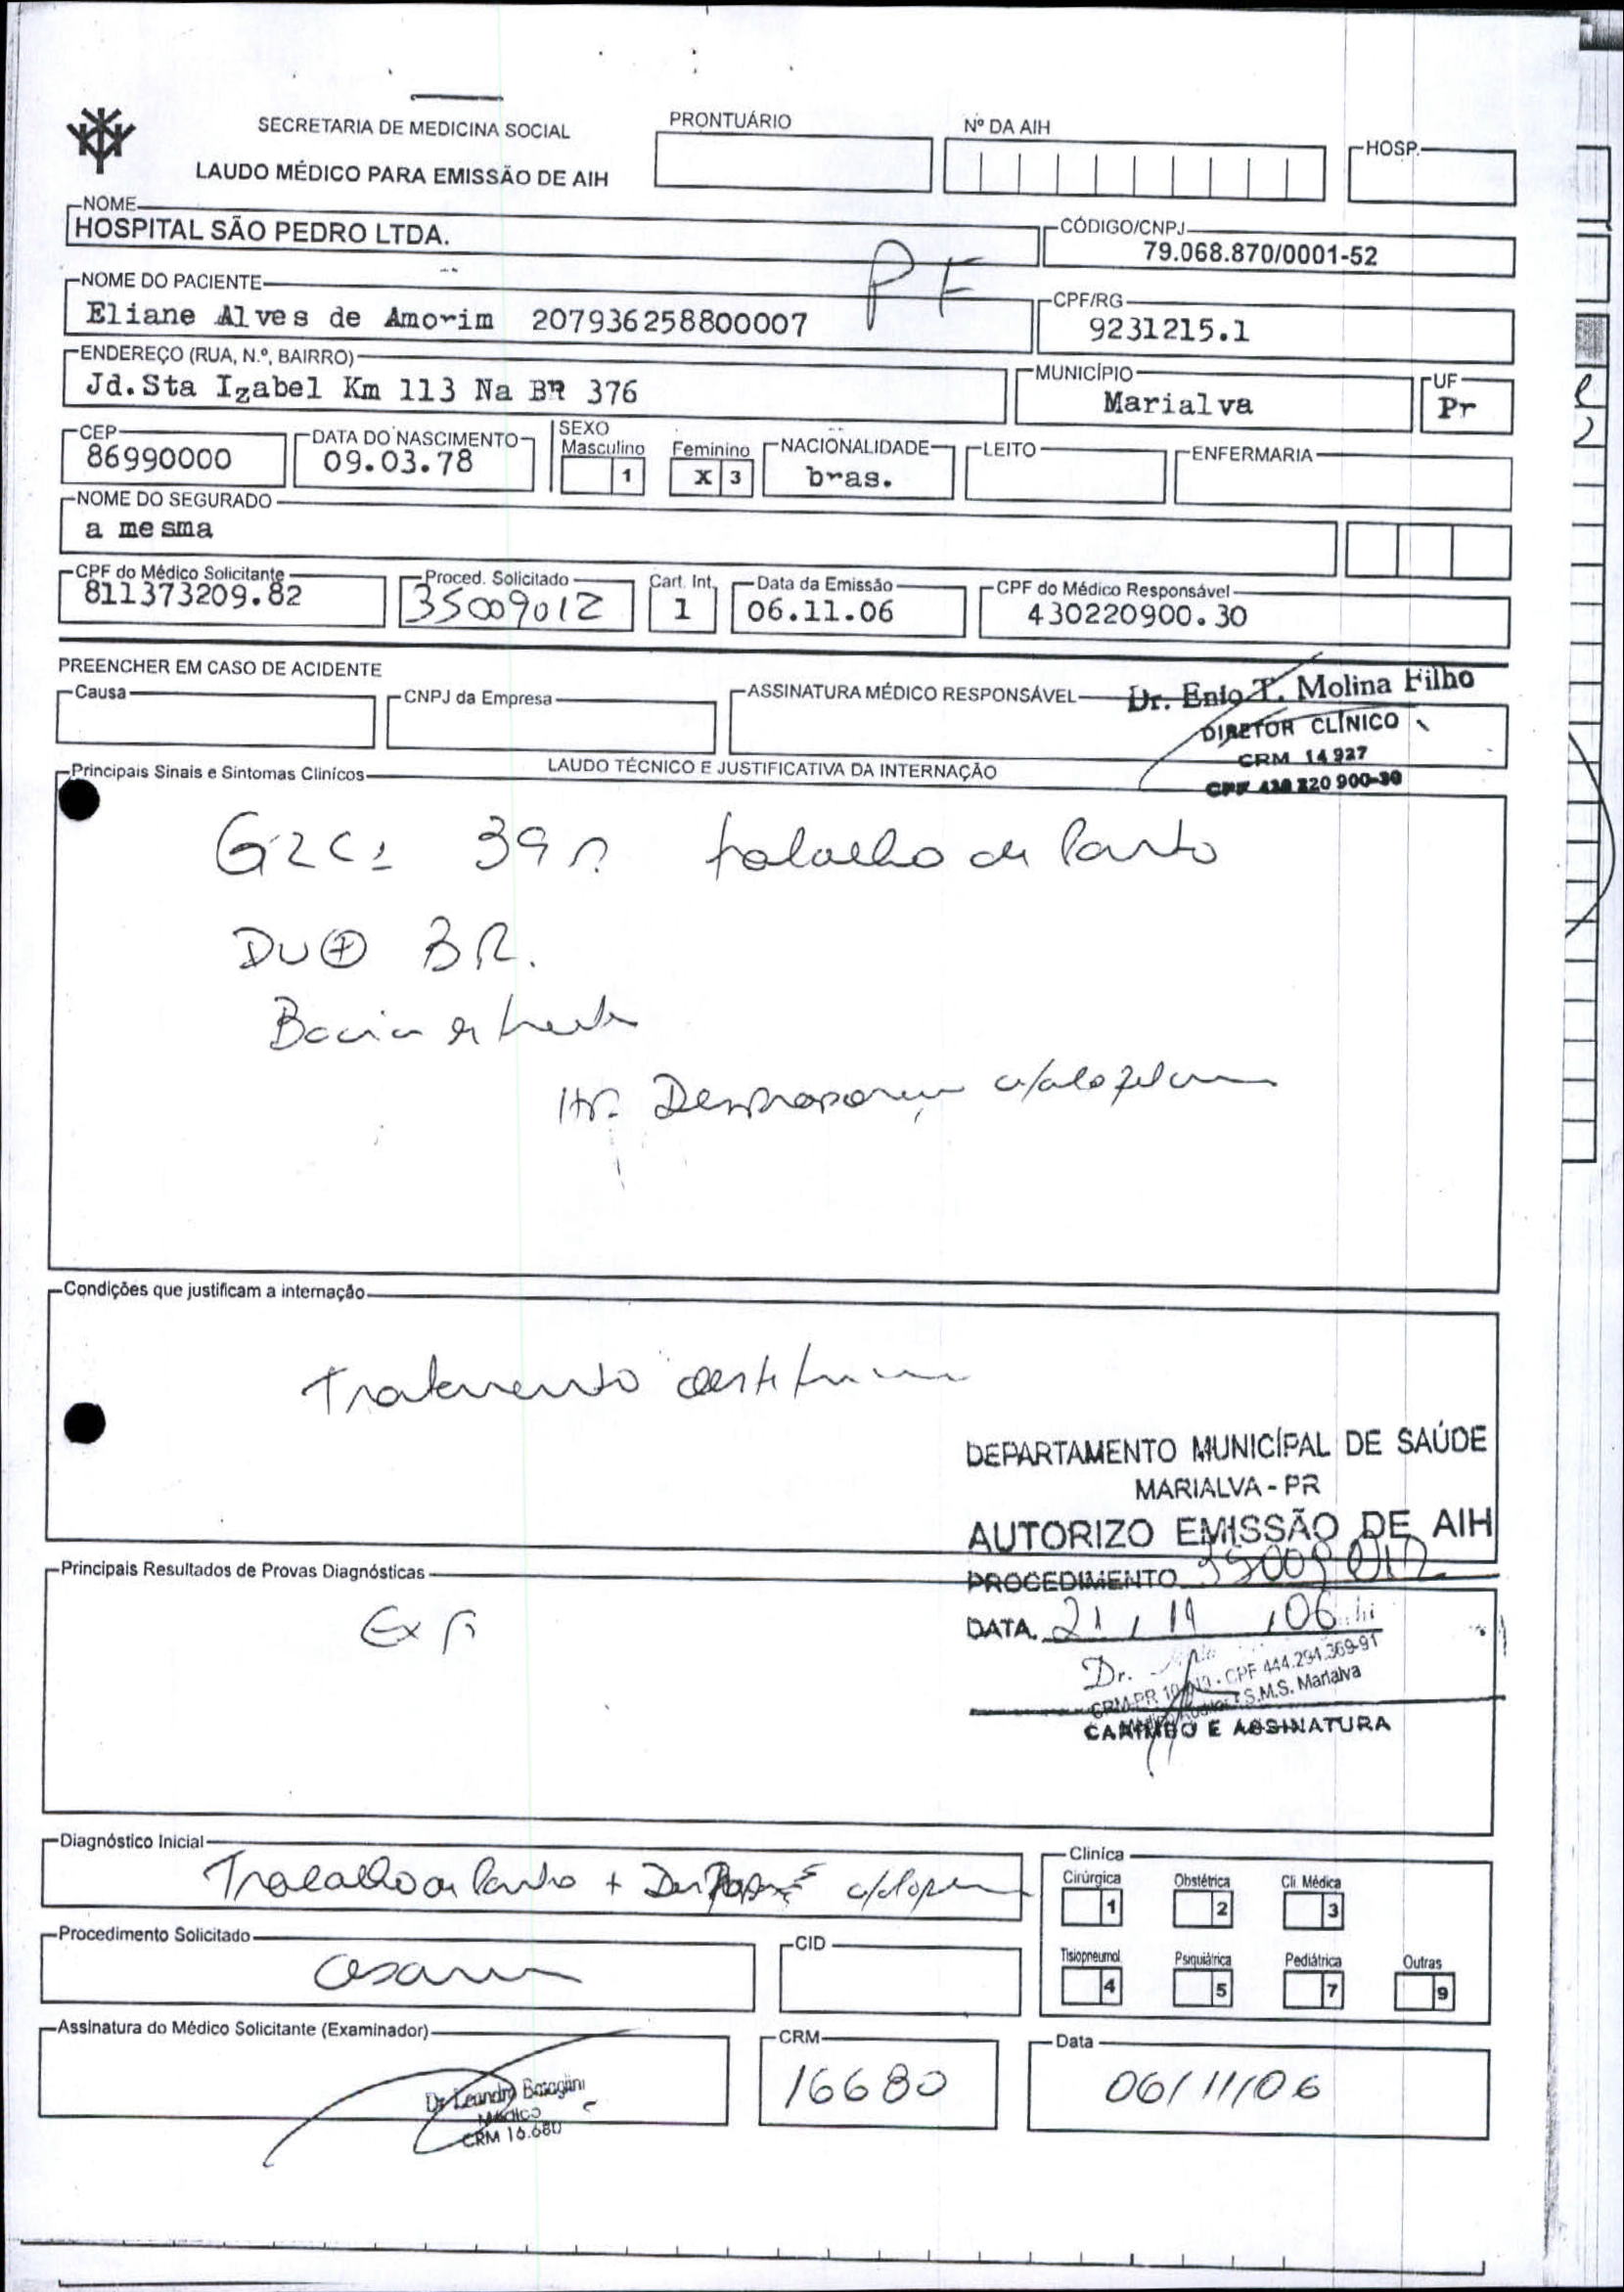 SECRETARIA DE MEDICINA SOCIAL
LAUDO MÉDICO PARA EMISSÃO DE AIH
PRONTUÁRIO
Nº DA AIH
HOSP.
NOME
HOSPITAL SÃO PEDRO LTDA.
CÓDIGO/CNPJ
79.068.870/0001-52
PF
NOME DO PACIENTE
Eliane Alves de Amorim 207936258800007
CPF/RG
9231215.1
ENDEREÇO (RUA, N.º, BAIRRO)
Jd.Sta Izabel Km 113 Na BR 376
MUNICÍPIO
Marialva
UF
Pr
CEP
86990000
DATA DO NASCIMENTO
09.03.78
SEXO
Masculino 1
Feminino X 3
NACIONALIDADE
bras.
LEITO
ENFERMARIA
NOME DO SEGURADO
a mesma
CPF do Médico Solicitante
811373209.82
Proced. Solicitado
35009012
Cart. Int.
1
Data da Emissão
06.11.06
CPF do Médico Responsável
430220900.30
PREENCHER EM CASO DE ACIDENTE
Causa
CNPJ da Empresa
ASSINATURA MÉDICO RESPONSÁVEL
Dr. Enio T. Molina Filho
DIRETOR CLÍNICO
CRM 14927
CPF 430 220 900-30
LAUDO TÉCNICO E JUSTIFICATIVA DA INTERNAÇÃO
Principais Sinais e Sintomas Clínicos
G2C1 39 trabalho de Parto
DU + BR.
Bacia
Condições que justificam a internação
Tratamento
DEPARTAMENTO MUNICÍPAL DE SAÚDE
MARIALVA - PR
AUTORIZO EMISSÃO DE AIH
PROCEDIMENTO 35009012
DATA. 21 / 11 / 06
Dr.
CPF 444.294.369-91
S.M.S. Marialva
CARIMBO E ASSINATURA
Principais Resultados de Provas Diagnósticas
Diagnóstico Inicial
Trabalho de Parto +
Clínica
Cirúrgica 1
Obstétrica 2
Cli. Médica 3
Tisiopneumol 4
Psiquiátrica 5
Pediátrica 7
Outras 9
Procedimento Solicitado
CID
Assinatura do Médico Solicitante (Examinador)
Dr. Leandro
Médico
CRM 16.680
CRM
16680
Data
06/11/06